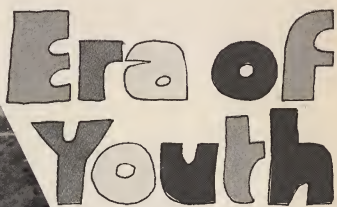 Era of
Youth